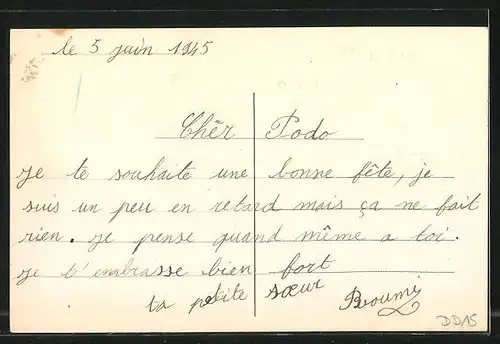 le 5 juin 1945
Chêr Podo
Je te souhaite une bonne fête, je
suis un peu en retard mais ça ne fait
rien. Je pense quand même a toi.
Je t'embrasse bien fort
ta petite sœur
Boumi
DD15